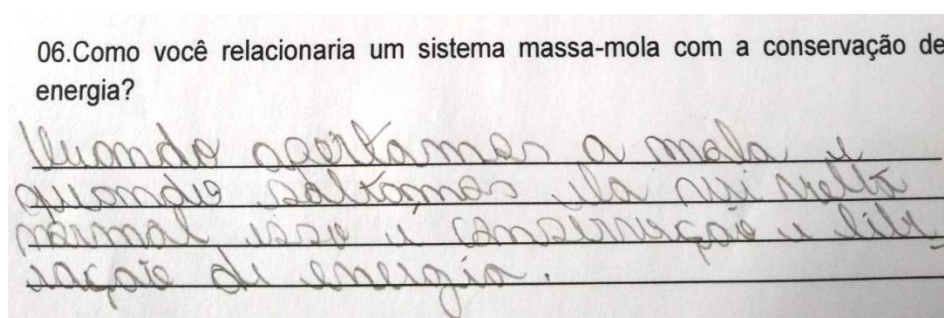 06.Como você relacionaria um sistema massa-mola com a conservação de
energia?
Quando apertamos a mola e
quando soltamos ela vai volta
normal, isso é conservação e libe-
ração de energia.